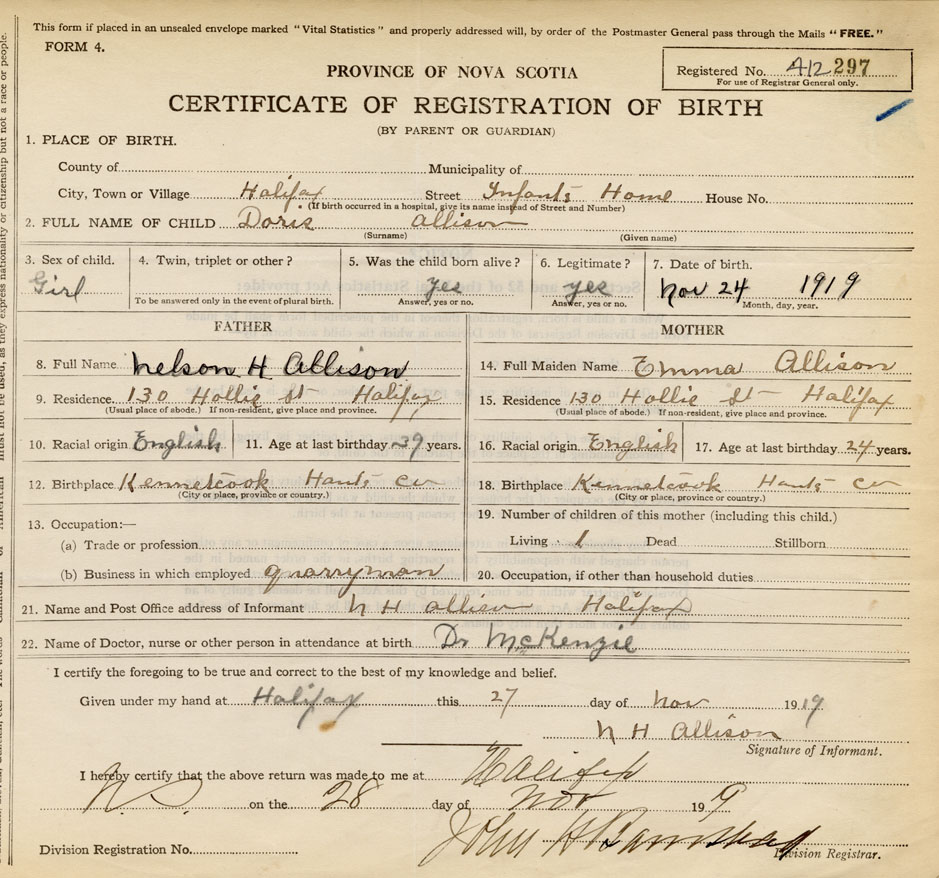 This form if placed in an unsealed envelope marked "Vital Statistics" and properly addressed will, by order of the Postmaster General pass through the Mails "FREE."
FORM 4.
Registered No. 412 297
For use of Registrar General only.
PROVINCE OF NOVA SCOTIA
CERTIFICATE OF REGISTRATION OF BIRTH
(BY PARENT OR GUARDIAN)
1. PLACE OF BIRTH.
County of Municipality of
City, Town or Village Halifax Street Infants Home House No.
(If birth occurred in a hospital, give its name instead of Street and Number)
2. FULL NAME OF CHILD Doris Allison
(Surname) (Given name)
3. Sex of child. 4. Twin, triplet or other? 5. Was the child born alive? 6. Legitimate? 7. Date of birth.
Girl yes yes Nov 24 1919
To be answered only in the event of plural birth. Answer, yes or no. Answer, yes or no. Month, day, year.
FATHER
8. Full Name Nelson H Allison
9. Residence 130 Hollis St Halifax
(Usual place of abode.) If non-resident, give place and province.
10. Racial origin English 11. Age at last birthday 39 years.
12. Birthplace Kennetcook Hants Co
(City or place, province or country.)
13. Occupation:—
(a) Trade or profession
(b) Business in which employed quarryman
MOTHER
14. Full Maiden Name Emma Allison
15. Residence 130 Hollis St Halifax
(Usual place of abode.) If non-resident, give place and province.
16. Racial origin English 17. Age at last birthday 24 years.
18. Birthplace Kennetcook Hants Co
(City or place, province or country.)
19. Number of children of this mother (including this child.)
Living 1 Dead Stillborn
20. Occupation, if other than household duties
21. Name and Post Office address of Informant N H Allison Halifax
22. Name of Doctor, nurse or other person in attendance at birth Dr McKenzie
I certify the foregoing to be true and correct to the best of my knowledge and belief.
Given under my hand at Halifax this 27 day of Nov 1919
N H Allison
Signature of Informant.
I hereby certify that the above return was made to me at Halifax
N.S. on the 28 day of Nov 19 9
John H
Division Registration No. Division Registrar.